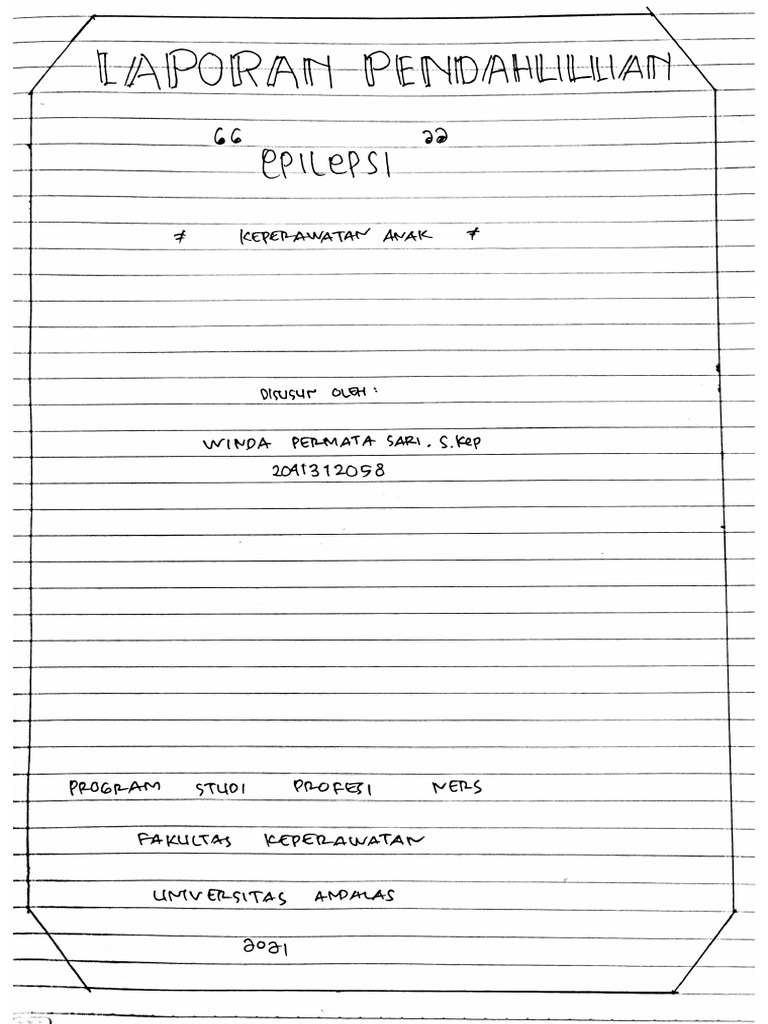 LAPORAN PENDAHULUAN
"
"
EPILEPSI
≠ KEPERAWATAN ANAK ≠
DISUSUN OLEH :
WINDA PERMATA SARI. S.Kep
2041312058
PROGRAM STUDI PROFESI NERS
FAKULTAS KEPERAWATAN
UNIVERSITAS ANDALAS
2021